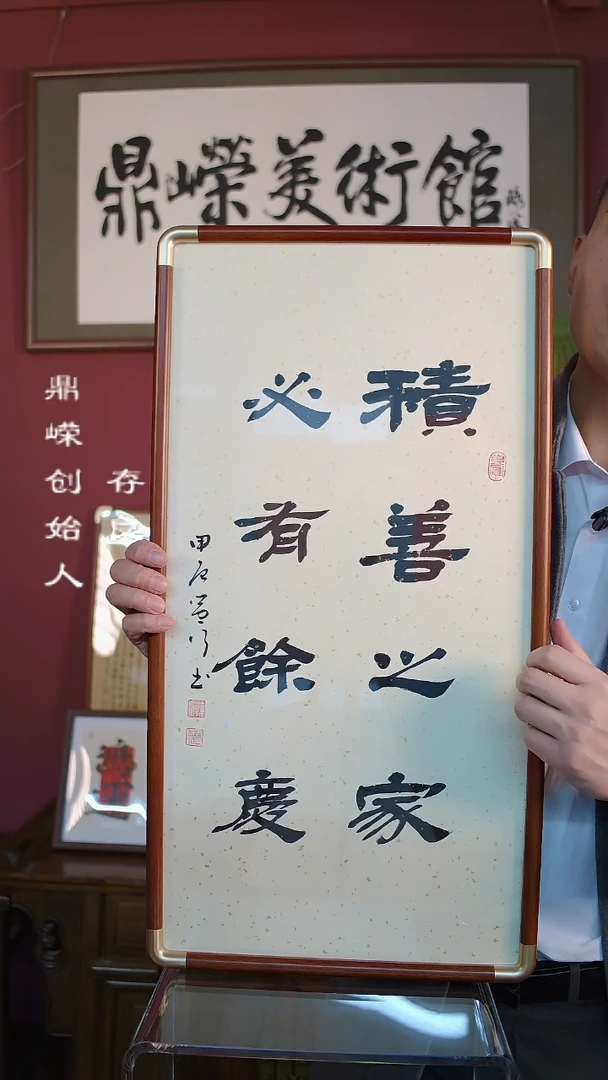 鼎嶸美術館
積善之家
必有餘慶
甲辰
书
鼎嵘创始人
存